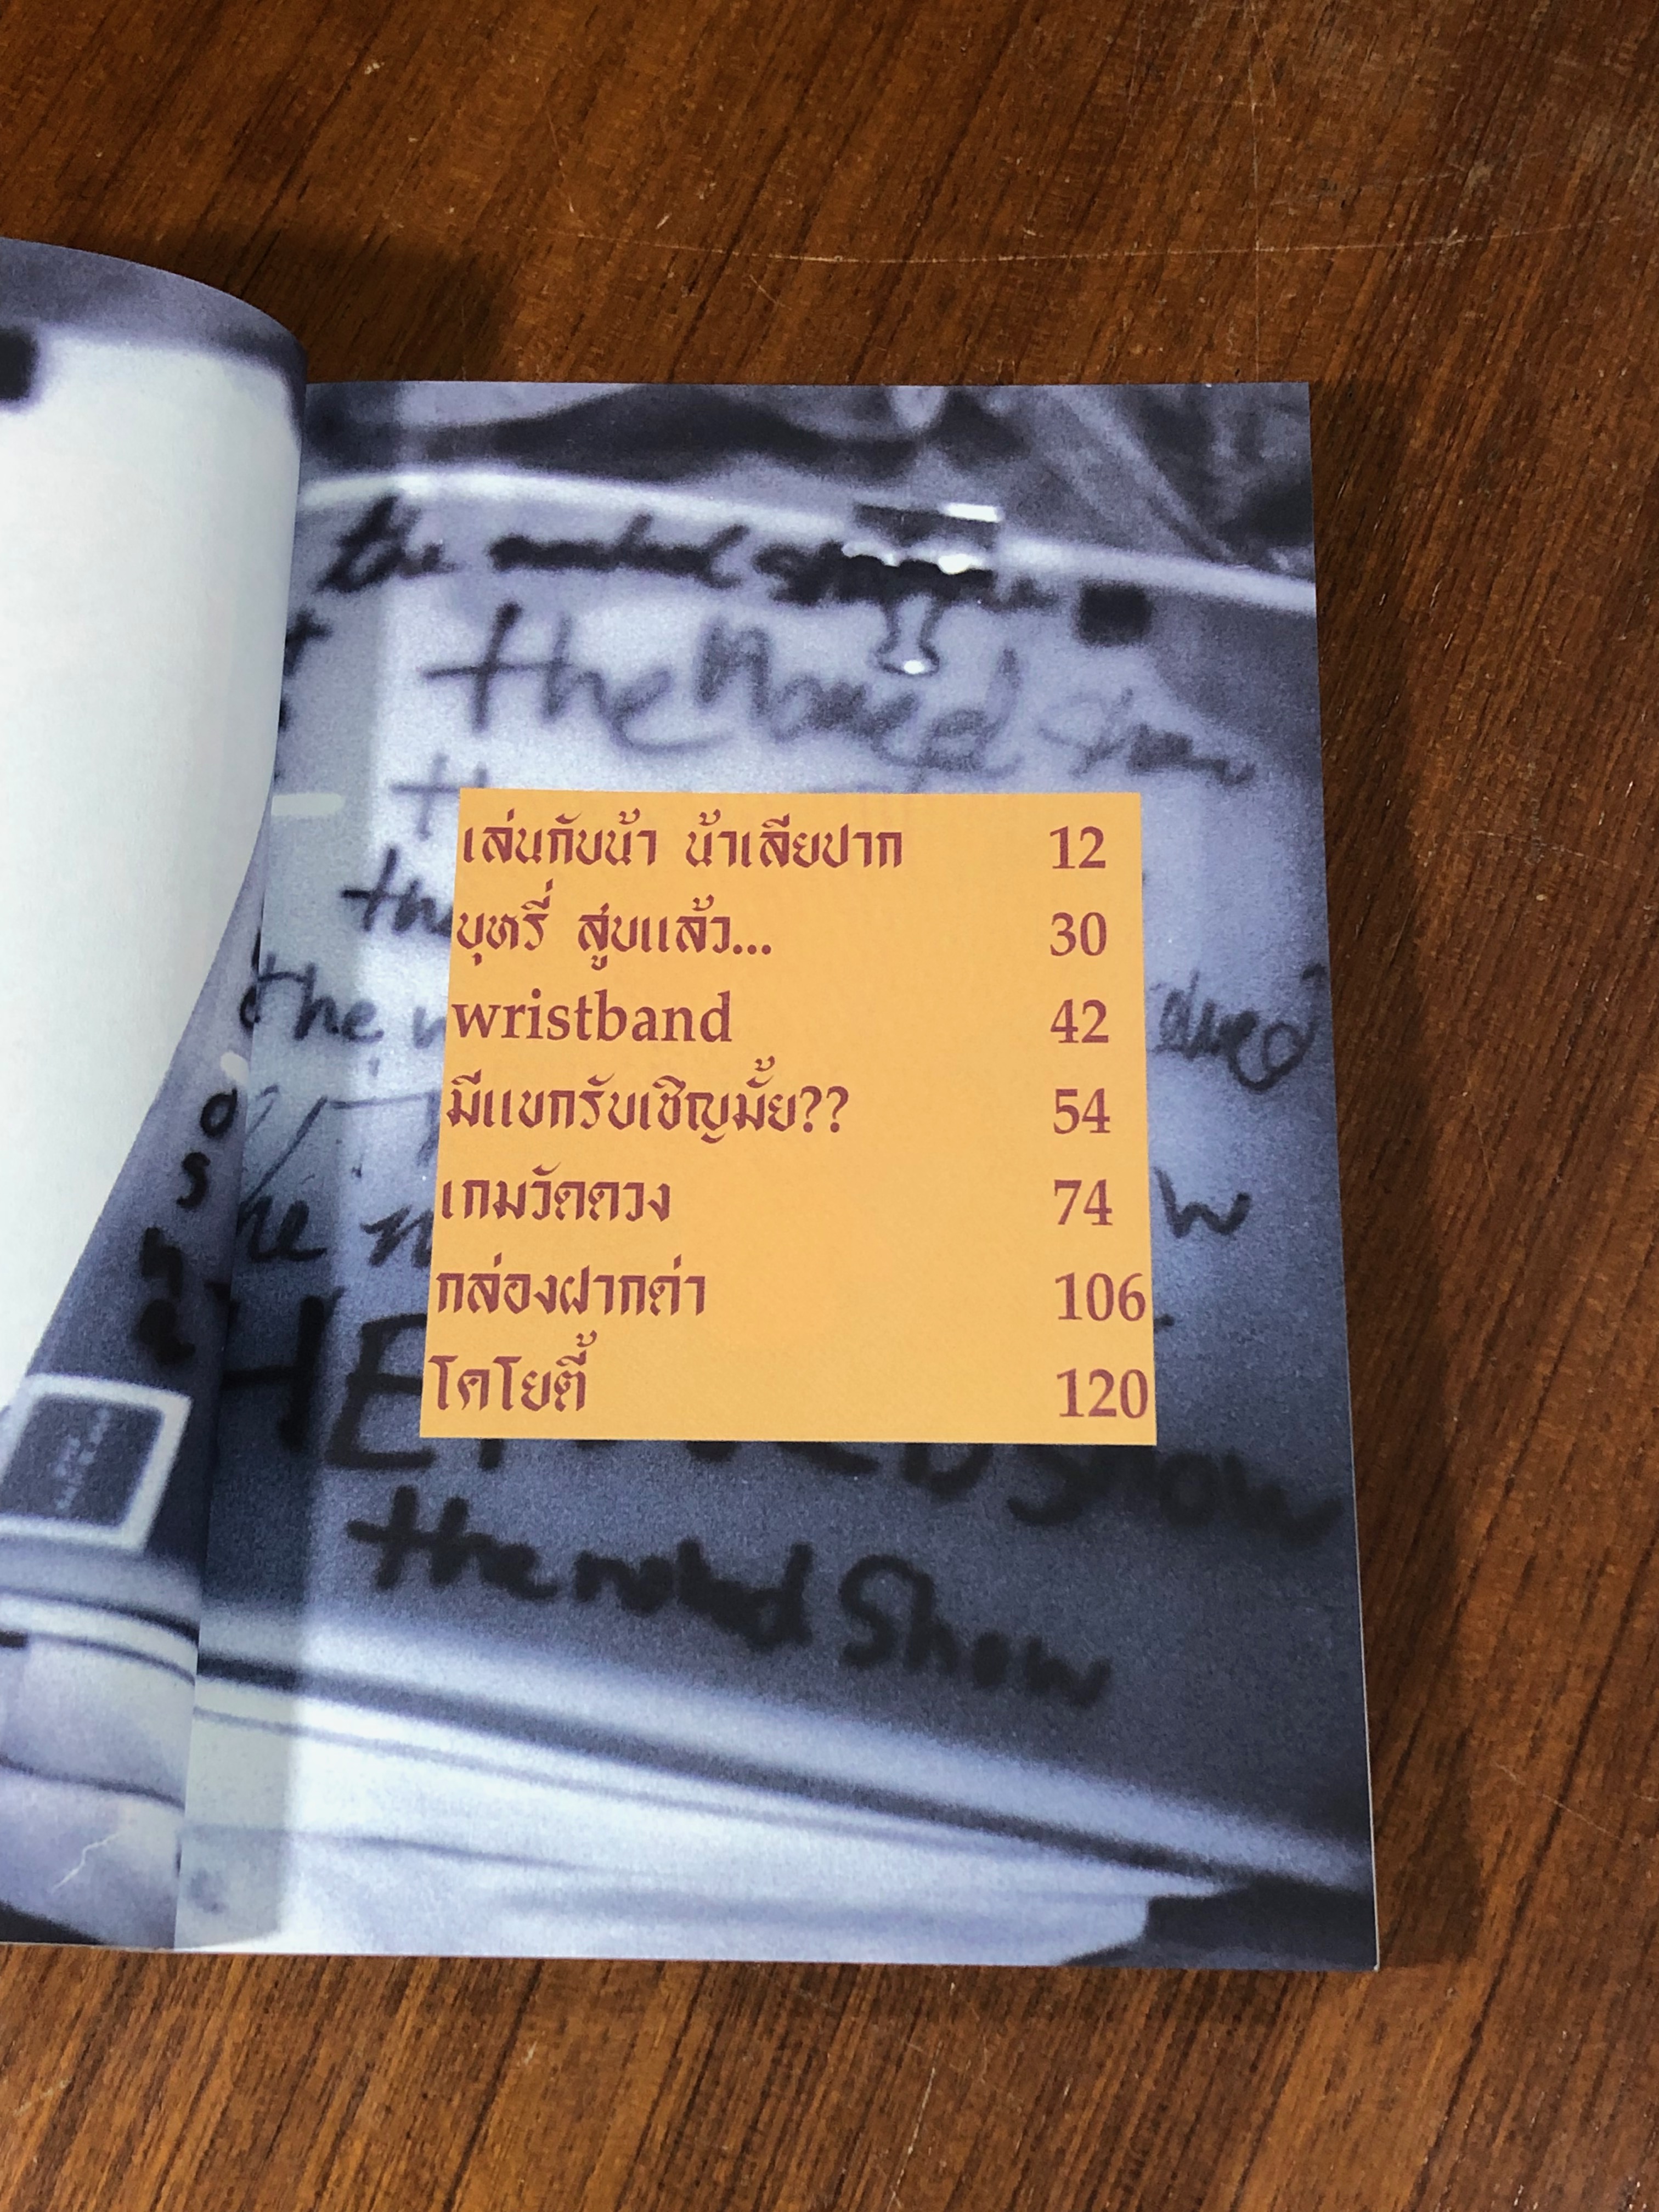 the naked show
the Naked Show
the
เล่นกับน้า น้าเลียปาก 12
บุหรี่ สูบแล้ว... 30
wristband 42
มีแขกรับเชิญมั้ย?? 54
เกมวัดดวง 74
กล่องฝากด่า 106
โคโยตี้ 120
show
the naked Show